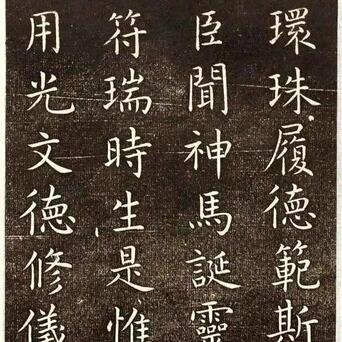 環珠履德範斯
臣聞神馬誕靈
符瑞時生是惟
用光文德修儀